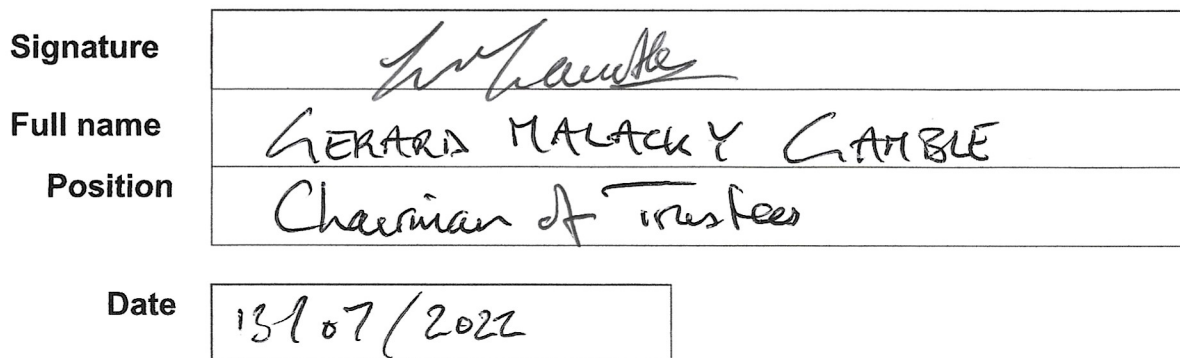 Signature
Full name GERARD MALACKY GAMBLE
Position Chairman of Trustees
Date 13/07/2022